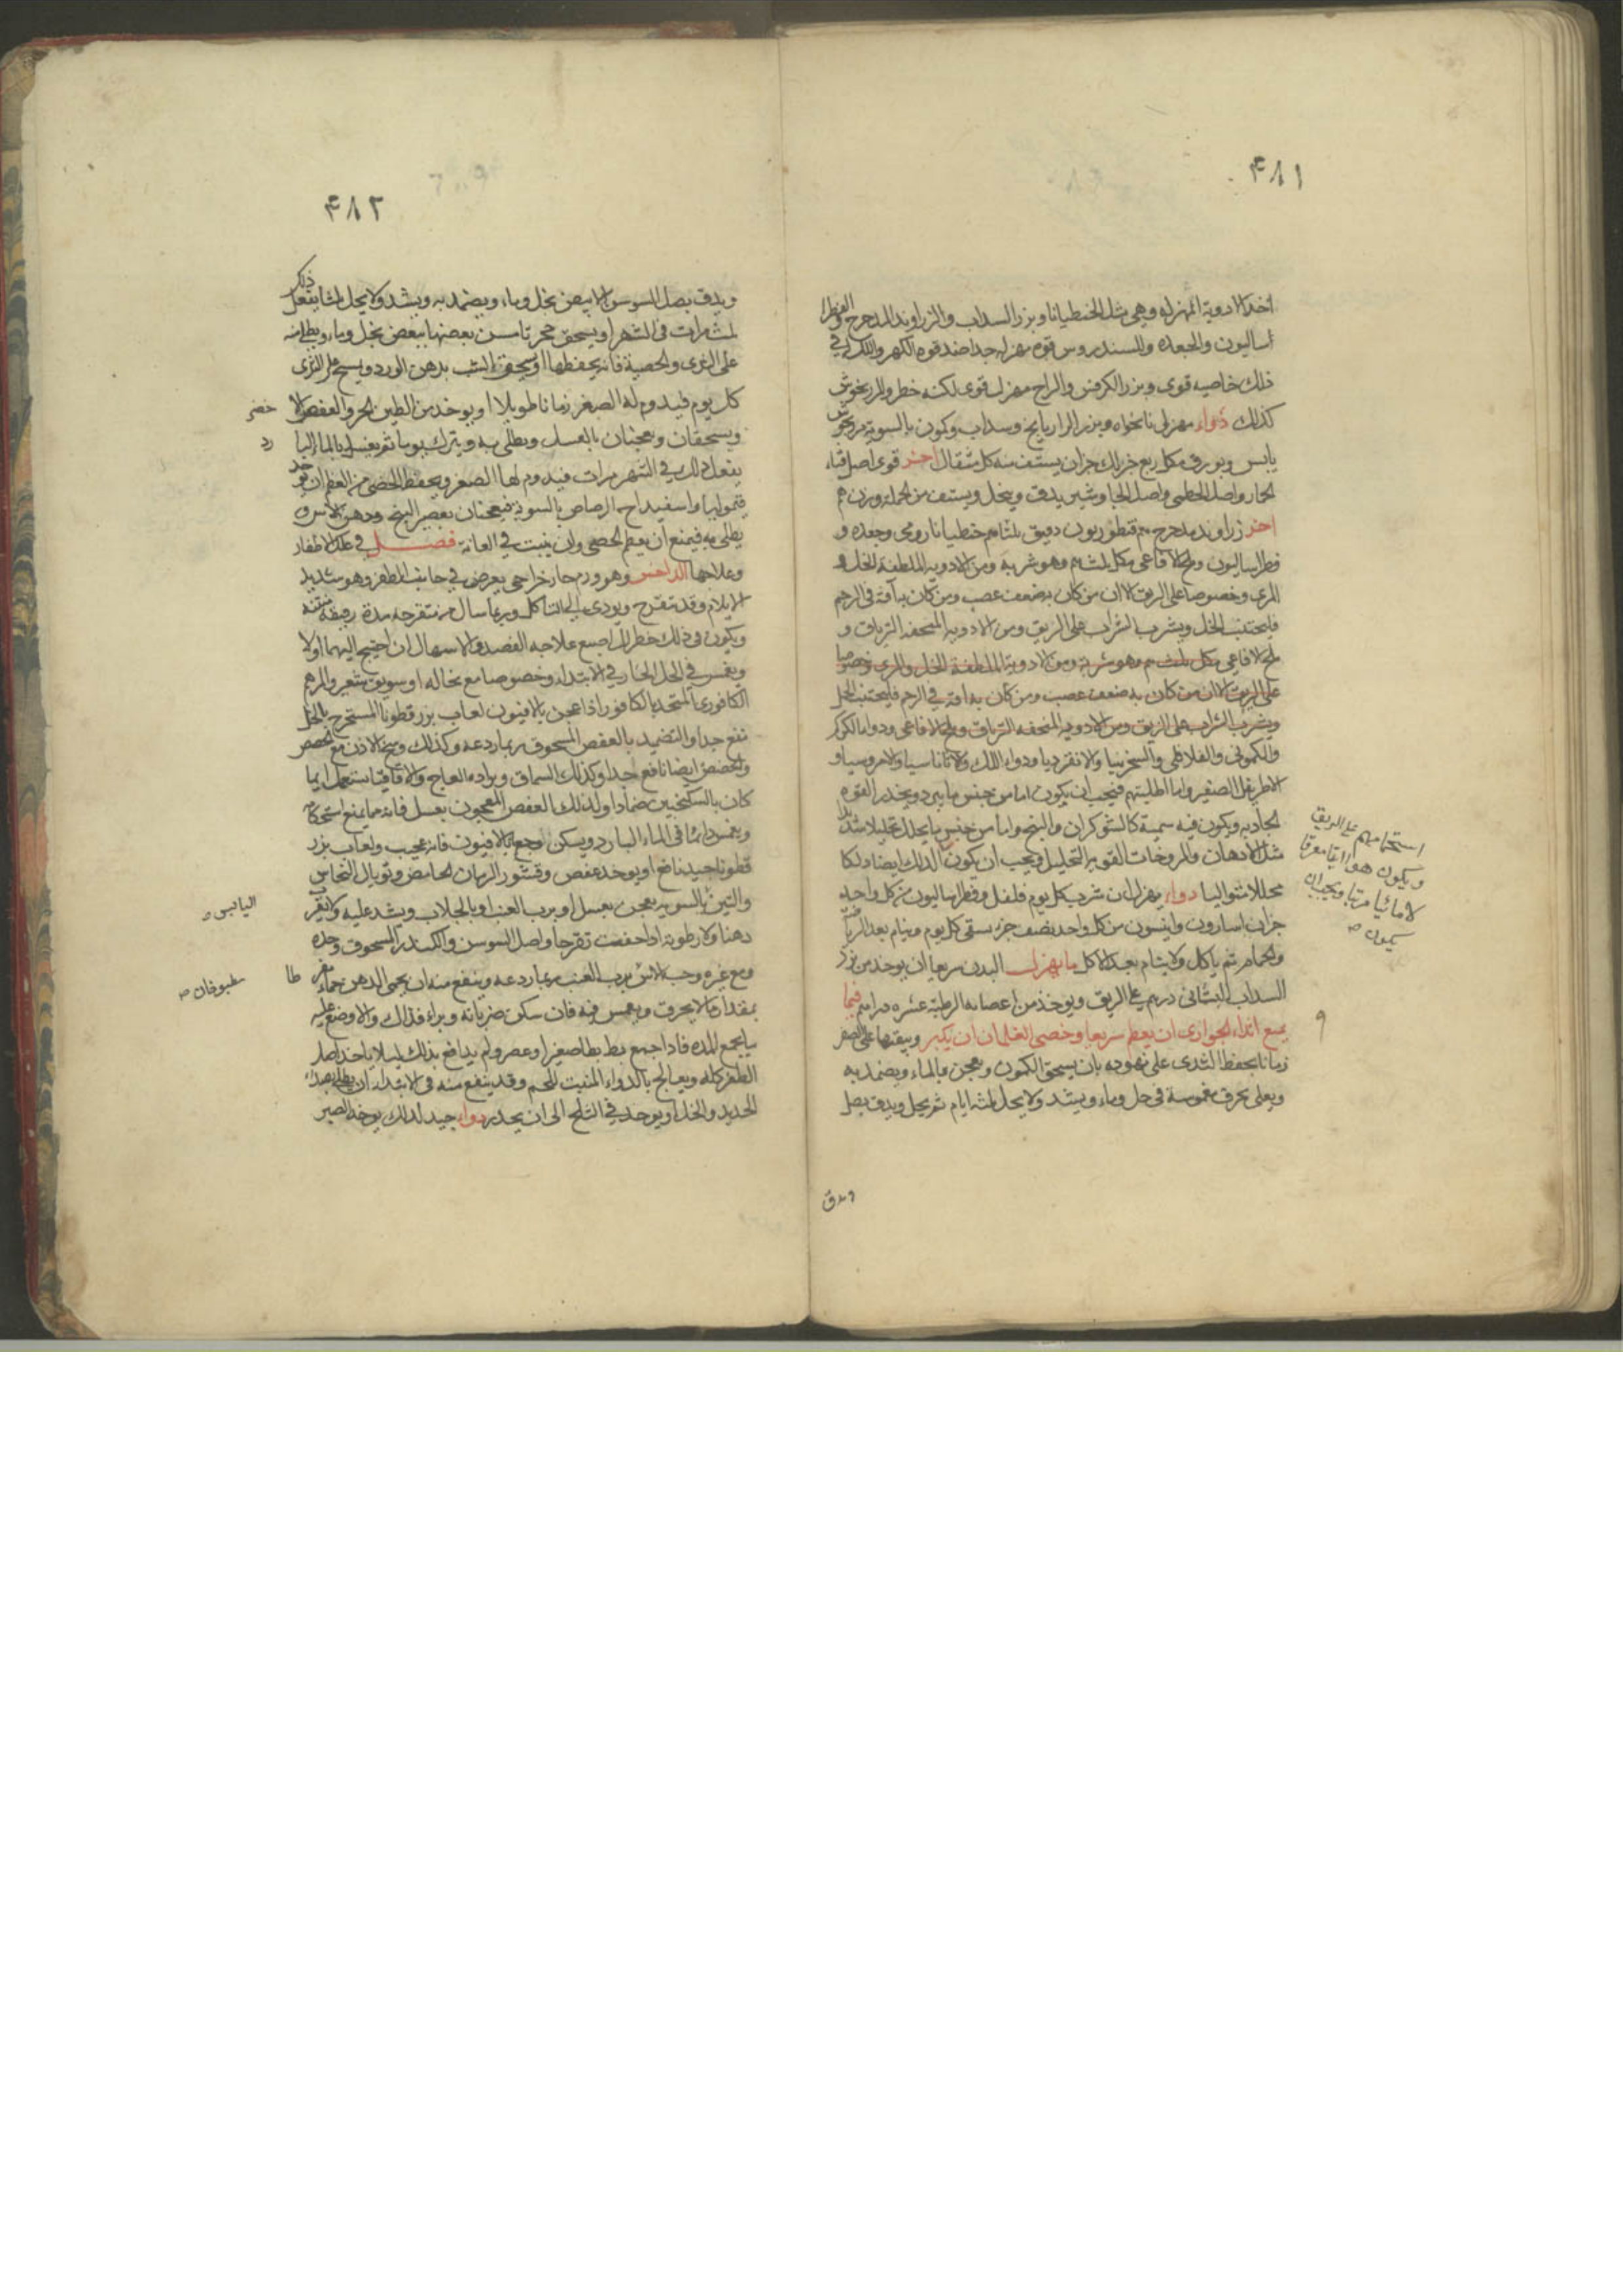 ٤٨١
اخذ الادوية المهزله وهى مثل الجنطيانا وبزر السداب والزراوند المدحرج والفطرا
أساليون والجعده والسندروس قوه مهزله جدا ضد قوه الكهربا واللك فى
ذلك خاصيه قوى وبزر الكرفس والزاج مهزل قوى لكنه خطر والمرزنجوش
كذلك دواء مهزل نانخواه وبزر الرازيانج وسداب وكمون بالسويه مرزنجوش
يابس وبورق مكل ربع جز لك جزان يستف منه كل مثقال اخر قوى اصل قثاء
الحمار واصل الخطمى واصل الجاوشير يدق وينخل ويستف من الجملة وزن هم
اخر زراوند مدحرج قنطوريون دقيق جنطيانا رومى وجعده و
فطراساليون وملح الافاعى مكل وهو شربة ومن الادويه الملطفة الخل و
المرى وخصوصا على الريق الا ان من كان به ضعف عصب ومن كان به آفة فى الرحم
فليجتنب الخل ويشرب الشراب على الريق ومن الادويه المنحفه الترياق و
ملح الافاعى مكل وهو شربة ومن الادوية الملطفة الخل والمرى وخصوصا
على الريق الا ان من كان به ضعف عصب ومن كان به افة فى الرحم فليجتنب الخل
ويشرب الشراب على الريق ومن الادويه المنحفه الترياق وملح الافاعى ودواء الكركم
والكمونى والفلافلى والسخرينيا والانقرديا ودواء اللك والاثاناسيا والامروسيا و
الاطريفل الصغير واما اطليتهم فيجب ان يكون اما من جنس ما يبرد ويخدر القوه
الجاذبه ويكون فيه سمية كالشوكران والبنج واما من جنس ما يحلل تحليلا شديدا
مثل الادهان والمروخات القويه التحليل ويجب ان يكون الدلك ايضا دلكا
محللا متواليا دواء يهزل ان شرب كل يوم فلفل وفطراساليون من كل واحد
جزان اسارون وانيسون من كل واحد نصف جز يسقى كل يوم وينام بعد الرياضة
والحمام ثم ياكل ولا ينام بعد الاكل ما يهزل البدن سريعا ان يوخذ من بزر
السداب البستانى درهم على الريق ويوخذ من اغصانه الرطبة عشره دراهم فيما
يمنع اثداء الجوارى ان يعظم سريعا وخصى الغلمان ان يكبر ويبقيها على الصغر
زمانا يحفظ الثدى على نهوده بان يسحق الكمون ويعجن بالماء ويضمد به
ويعلى بخرق مغموسة فى خل وماء ويشد ولا يحل ثلثه ايام ثم يحل ويدق بصل
استحمامهم على الريق
ويكون هواؤا معرقا
لا مائيا مرتبا ويجب ان
يكون
ويدق
٤٨٢
ويدق بصل السوسن الابيض بخل وماء ويضمد به ويشد ولا يحل ثلثا يفعل ذلك
ثلث مرات فى الشهر او يسحق حجر تا مسن بعضها ببعض بخل وماء ويطلى منه
على الثدى والخصية فانه يحفظها او يسحق الشب بدهن الورد ويمسح على الثدى
كل يوم فيدوم له الصغر زمانا طويلا او يوخذ من الطين الحر والعفص الا
خضر
ويسحقان ويعجنان بالعسل ويطلى به ويترك يوما ثم يغسل بالماء البا
رد
يفعل ذلك فى الشهر مرات فيدوم لها الصغر ويحفظ الخصى من العظم ان يوخذ
قيموليا واسفيداج الرصاص بالسويه فيعجنان بعصير البنج ودهن الاس و
يطلى به فيمنع ان يعظم الخصى وان ينبت فى العانة فصل فى علل الاظفار
وعلاجها الداحس وهو ورم حار خراجى يعرض فى جانب الظفر وهو شديد
الايلام وقد تقرح ويودى الى التاكل وربما سال من متقرحه مدة رقيقة منتنه
ويكون فى ذلك خطر للاصبع علاجه الفصد والاسهال ان احتيج اليهما اولا
ويغمس فى الخل الحار فى الابتداء وخصوصا مع نخاله او سويق شعير والمرهم
الكافورى المتخذ بالكافور اذا عجن بالافيون لعاب بزر قطونا المستخرج بالخل
نفع جدا والتضميد بالعفص المسحوق ربما ردعه وكذلك وسخ الاذن مع الحضض
والحضض ايضا نافع جدا وكذلك السماق وبراده العاج والاقاقيا يستعمل ايما
كان بالسكنجبين ضمادا وكذلك العفص المعجون بعسل فانه مما يمنع استحكامه
ويغمس دائما فى الماء البارد ويسكن الوجع بالافيون فانه عجيب ولعاب بزر
قطونا جيد نافع او يوخذ عفص وقشور الرمان الحامض وتوبال النحاس
والتين بالسويه يعجن بعسل او برب العنب او بالجلاب ويشد عليه ولا يقرب
اليابس
دهنا ولا رطوبة اذا خفت تقرحا واصل السوسن والكندر المسحوق وحده
ومع غيره وحب الاس برب العنب ربما ردعه وينفع منه ان يحمى الدهن حماء
مطبوخان
بمقدار ما لا يحرق ويغمس فيه فان سكن ضربانه وبراء فذلك والا وضع عليه
ما يجمع المده فاذا اجتمع بط بطا صغيرا وعصر ولم يدافع بذلك ليلا ياخذ اصل
الظفر كله ويعالج بالدواء المنبت للحم وقد ينفع منه فى الابتداء ان يطلى بصداء
الحديد والخل او يوخذ فى الثلج الى ان يخدر دواء جيد لذلك يوخذ الصبر